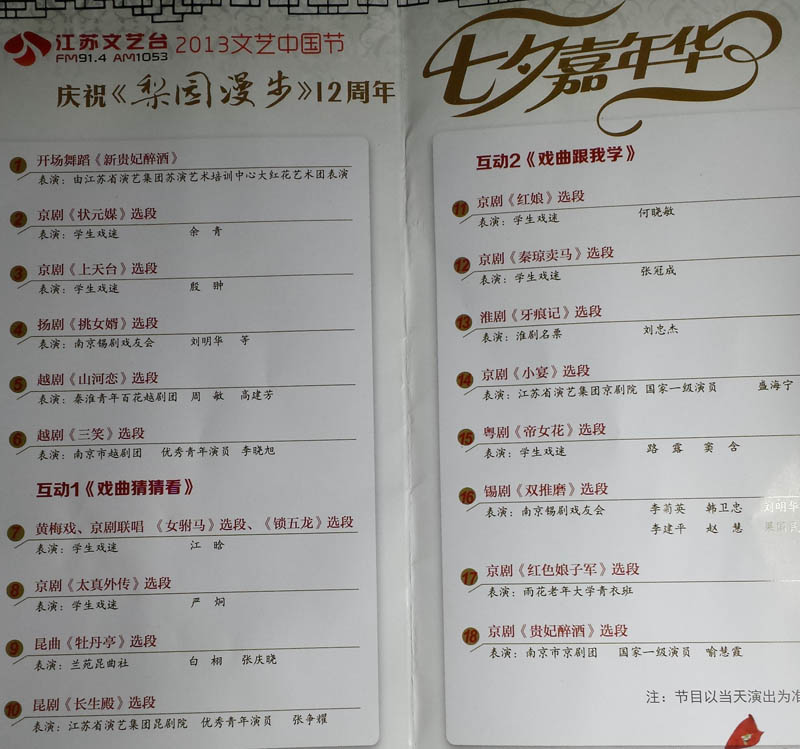 江苏文艺台 2013文艺中国节
FM91.4 AM1053
庆祝《梨园漫步》12周年
七夕嘉年华
1 开场舞蹈《新贵妃醉酒》
表演：由江苏省演艺集团苏演艺术培训中心大红花艺术团表演
2 京剧《状元媒》选段
表演：学生戏迷 余 青
3 京剧《上天台》选段
表演：学生戏迷 殷 翀
4 扬剧《挑女婿》选段
表演：南京锡剧戏友会 刘明华 等
5 越剧《山河恋》选段
表演：秦淮青年百花越剧团 周 敏 高建芳
6 越剧《三笑》选段
表演：南京市越剧团 优秀青年演员 李晓旭
互动1《戏曲猜猜看》
7 黄梅戏、京剧联唱 《女驸马》选段、《锁五龙》选段
表演：学生戏迷 江 晗
8 京剧《太真外传》选段
表演：学生戏迷 严 炯
9 昆曲《牡丹亭》选段
表演：兰苑昆曲社 白 栩 张庆晓
10 昆剧《长生殿》选段
表演：江苏省演艺集团昆剧院 优秀青年演员 张争耀
互动2《戏曲跟我学》
11 京剧《红娘》选段
表演：学生戏迷 何晓敏
12 京剧《秦琼卖马》选段
表演：学生戏迷 张冠成
13 淮剧《牙痕记》选段
表演：淮剧名票 刘忠杰
14 京剧《小宴》选段
表演：江苏省演艺集团京剧院 国家一级演员 盛海宁
15 粤剧《帝女花》选段
表演：学生戏迷 路 露 窦 含
16 锡剧《双推磨》选段
表演：南京锡剧戏友会 李菊英 韩卫忠 刘明华
李建平 赵 慧
17 京剧《红色娘子军》选段
表演：雨花老年大学青衣班
18 京剧《贵妃醉酒》选段
表演：南京市京剧团 国家一级演员 喻慧霞
注：节目以当天演出为准